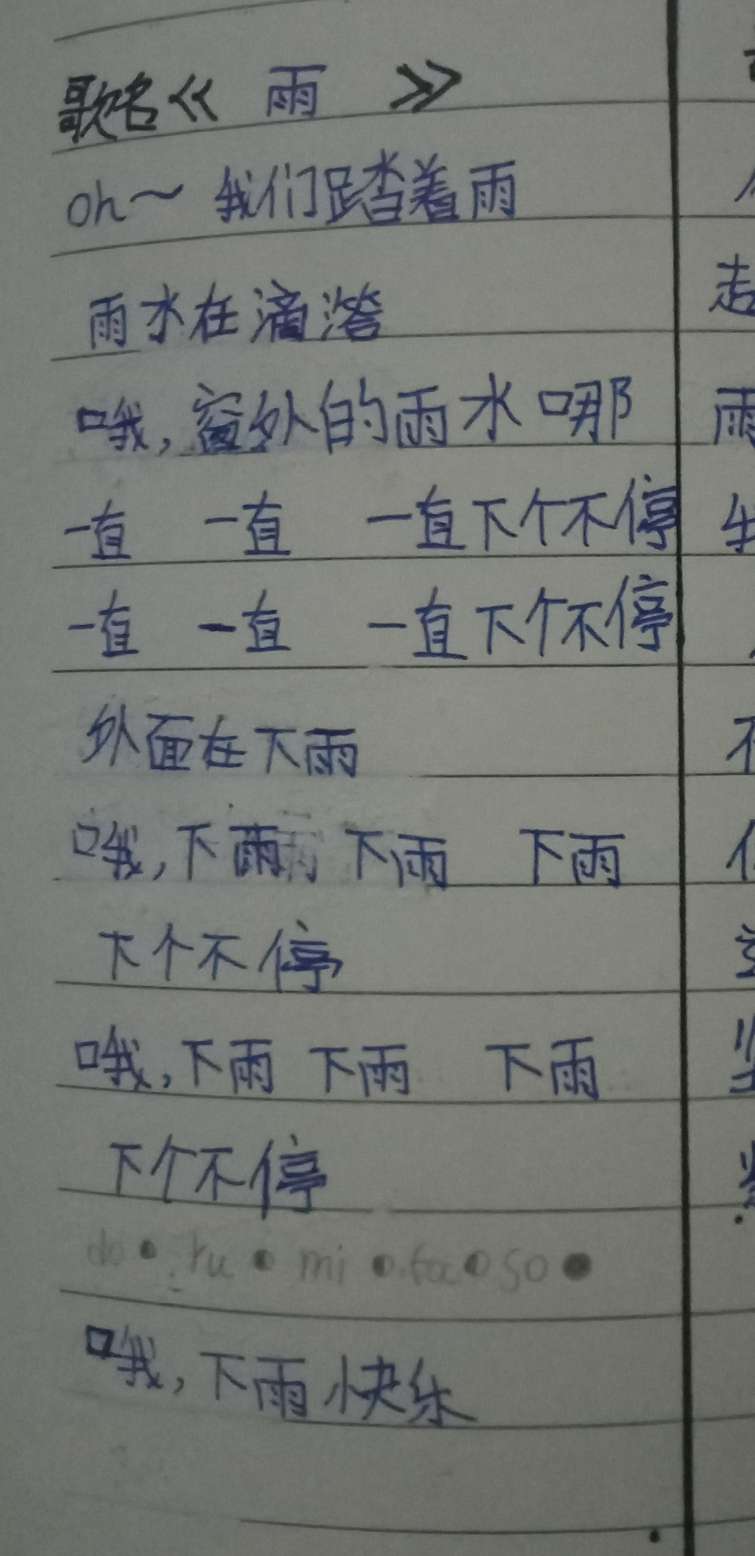 歌名《 雨 》
oh～ 我们踏着雨
雨水在滴答
哦,窗外的雨水哪
一直 一直 一直下个不停
一直 一直 一直下个不停
外面在下雨
哦,下雨 下雨 下雨
下个不停
哦,下雨 下雨 下雨
下个不停
do • ru • mi • fa • so •
哦,下雨快乐
走
雨